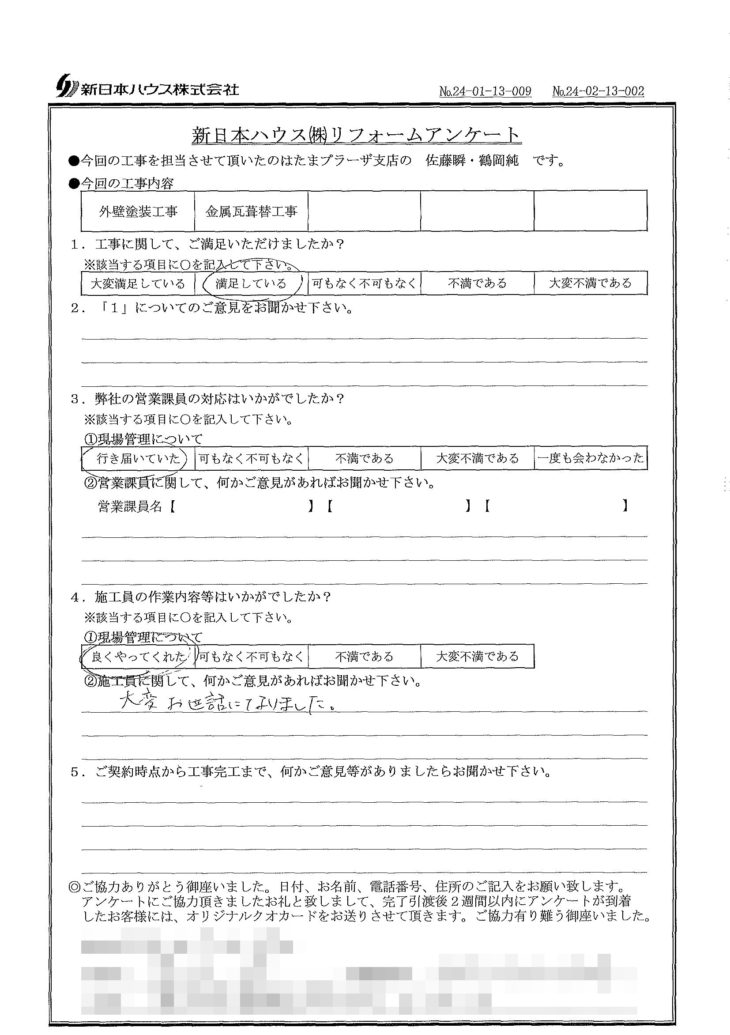 新日本ハウス株式会社
№24-01-13-009 №24-02-13-002
新日本ハウス㈱リフォームアンケート
●今回の工事を担当させて頂いたのはたまプラーザ支店の 佐藤瞬・鶴岡純 です。
●今回の工事内容
外壁塗装工事 金属瓦葺替工事
1．工事に関して、ご満足いただけましたか？
※該当する項目に○を記入して下さい。
大変満足している 満足している 可もなく不可もなく 不満である 大変不満である
2．「1」についてのご意見をお聞かせ下さい。
3．弊社の営業課員の対応はいかがでしたか？
※該当する項目に○を記入して下さい。
①現場管理について
行き届いていた 可もなく不可もなく 不満である 大変不満である 一度も会わなかった
②営業課員に関して、何かご意見があればお聞かせ下さい。
営業課員名【 】【 】【 】
4．施工員の作業内容等はいかがでしたか？
※該当する項目に○を記入して下さい。
①現場管理について
良くやってくれた 可もなく不可もなく 不満である 大変不満である
②施工員に関して、何かご意見があればお聞かせ下さい。
大変お世話になりました。
5．ご契約時点から工事完工まで、何かご意見等がありましたらお聞かせ下さい。
◎ご協力ありがとう御座いました。日付、お名前、電話番号、住所のご記入をお願い致します。
アンケートにご協力頂きましたお礼と致しまして、完了引渡後２週間以内にアンケートが到着
したお客様には、オリジナルクオカードをお送りさせて頂きます。ご協力有り難う御座いました。